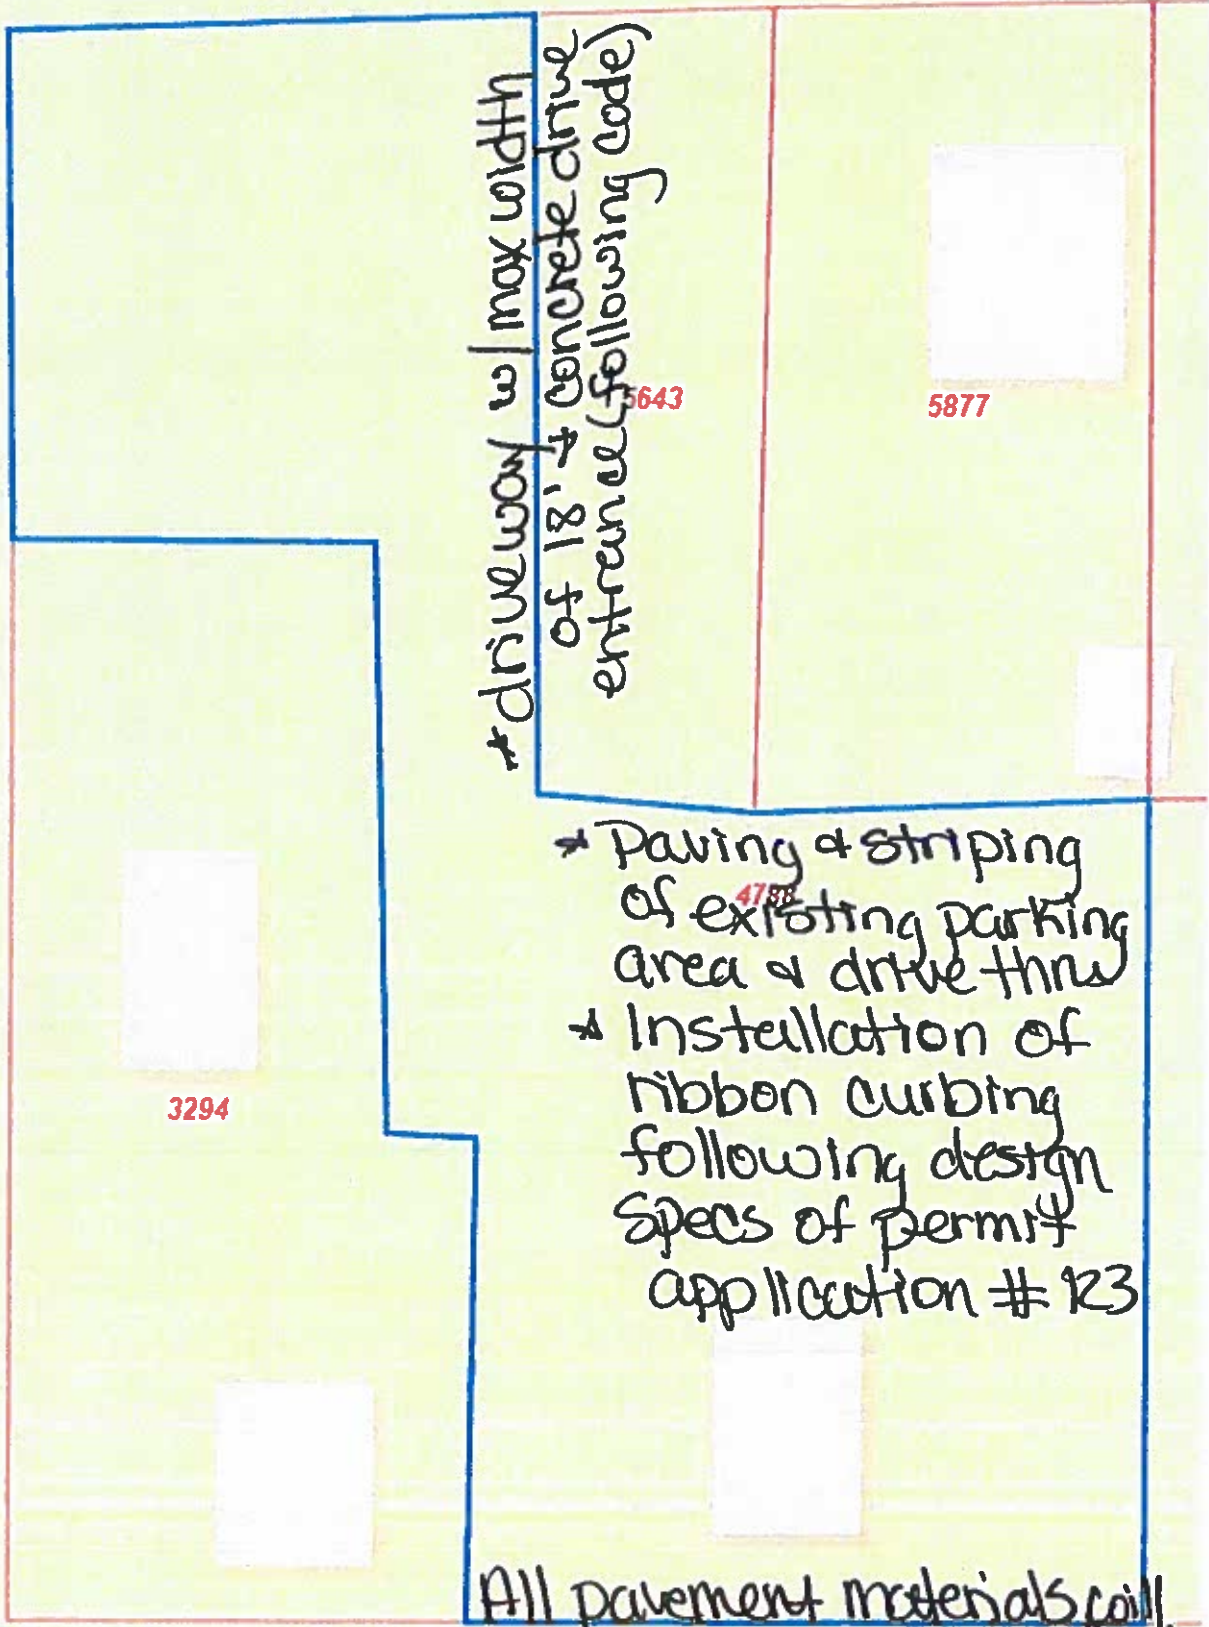 *driveway w/ max width
of 18' & concrete drive
entrance (following code)
5643
5877
* Paving & striping
4788
of existing parking
area & drive thru
* Installation of
ribbon curbing
following design
specs of permit
application # 123
3294
All pavement materials will